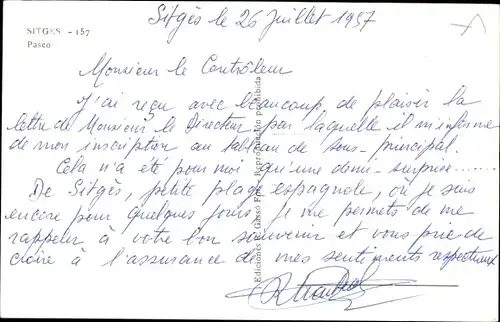 Sitgès le 26 Juillet 1957
SITGES - 157
Paseo
Monsieur le Contrôleur
J'ai reçu avec beaucoup de plaisir la
lettre de Monsieur le Directeur par laquelle il m'informe
de mon inscription au tableau de sous-principal.
Cela n'a été pour moi qu'une demi-surprise.......
De Sitgès, petite plage espagnole, où je suis
encore pour quelques jours je me permets de me
rappeler à votre bon souvenir et vous prie de
croire à l'assurance de mes sentiments respectueux
Reproducción prohibida